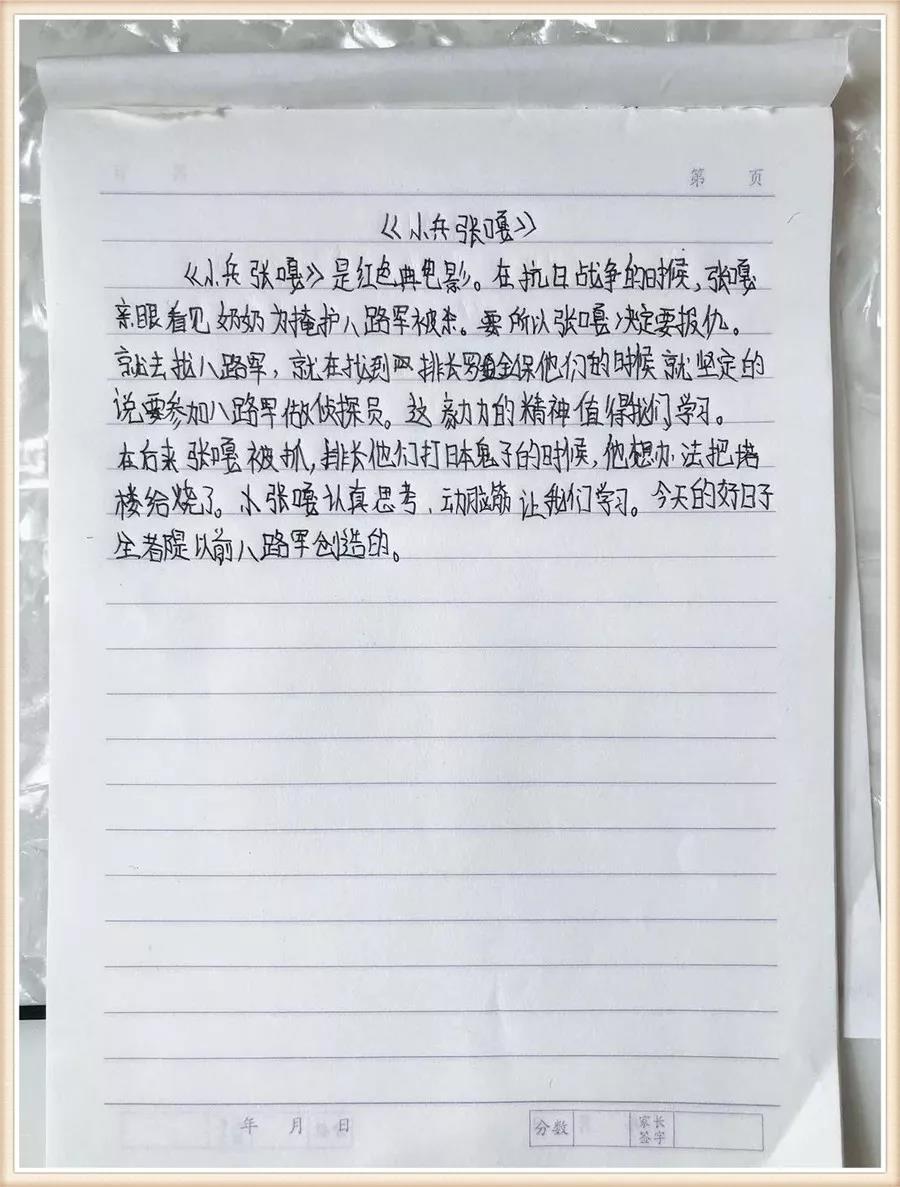 第 页
《小兵张嘎》
《小兵张嘎》是红色典电影。在抗日战争的时候，张嘎
亲眼看见奶奶为掩护八路军被杀。要所以张嘎决定要报仇。
就去找八路军，就在找到 排长罗金保他们的时候就坚定的
说要参加八路军做侦探员。这 的精神值得我们学习。
在后来张嘎被抓，排长他们打日本鬼子的时候，他想办法把
楼给烧了。小张嘎认真思考、动脑筋让我们学习。今天的好日子
全都是以前八路军创造的。
年 月 日
分数 家长签字